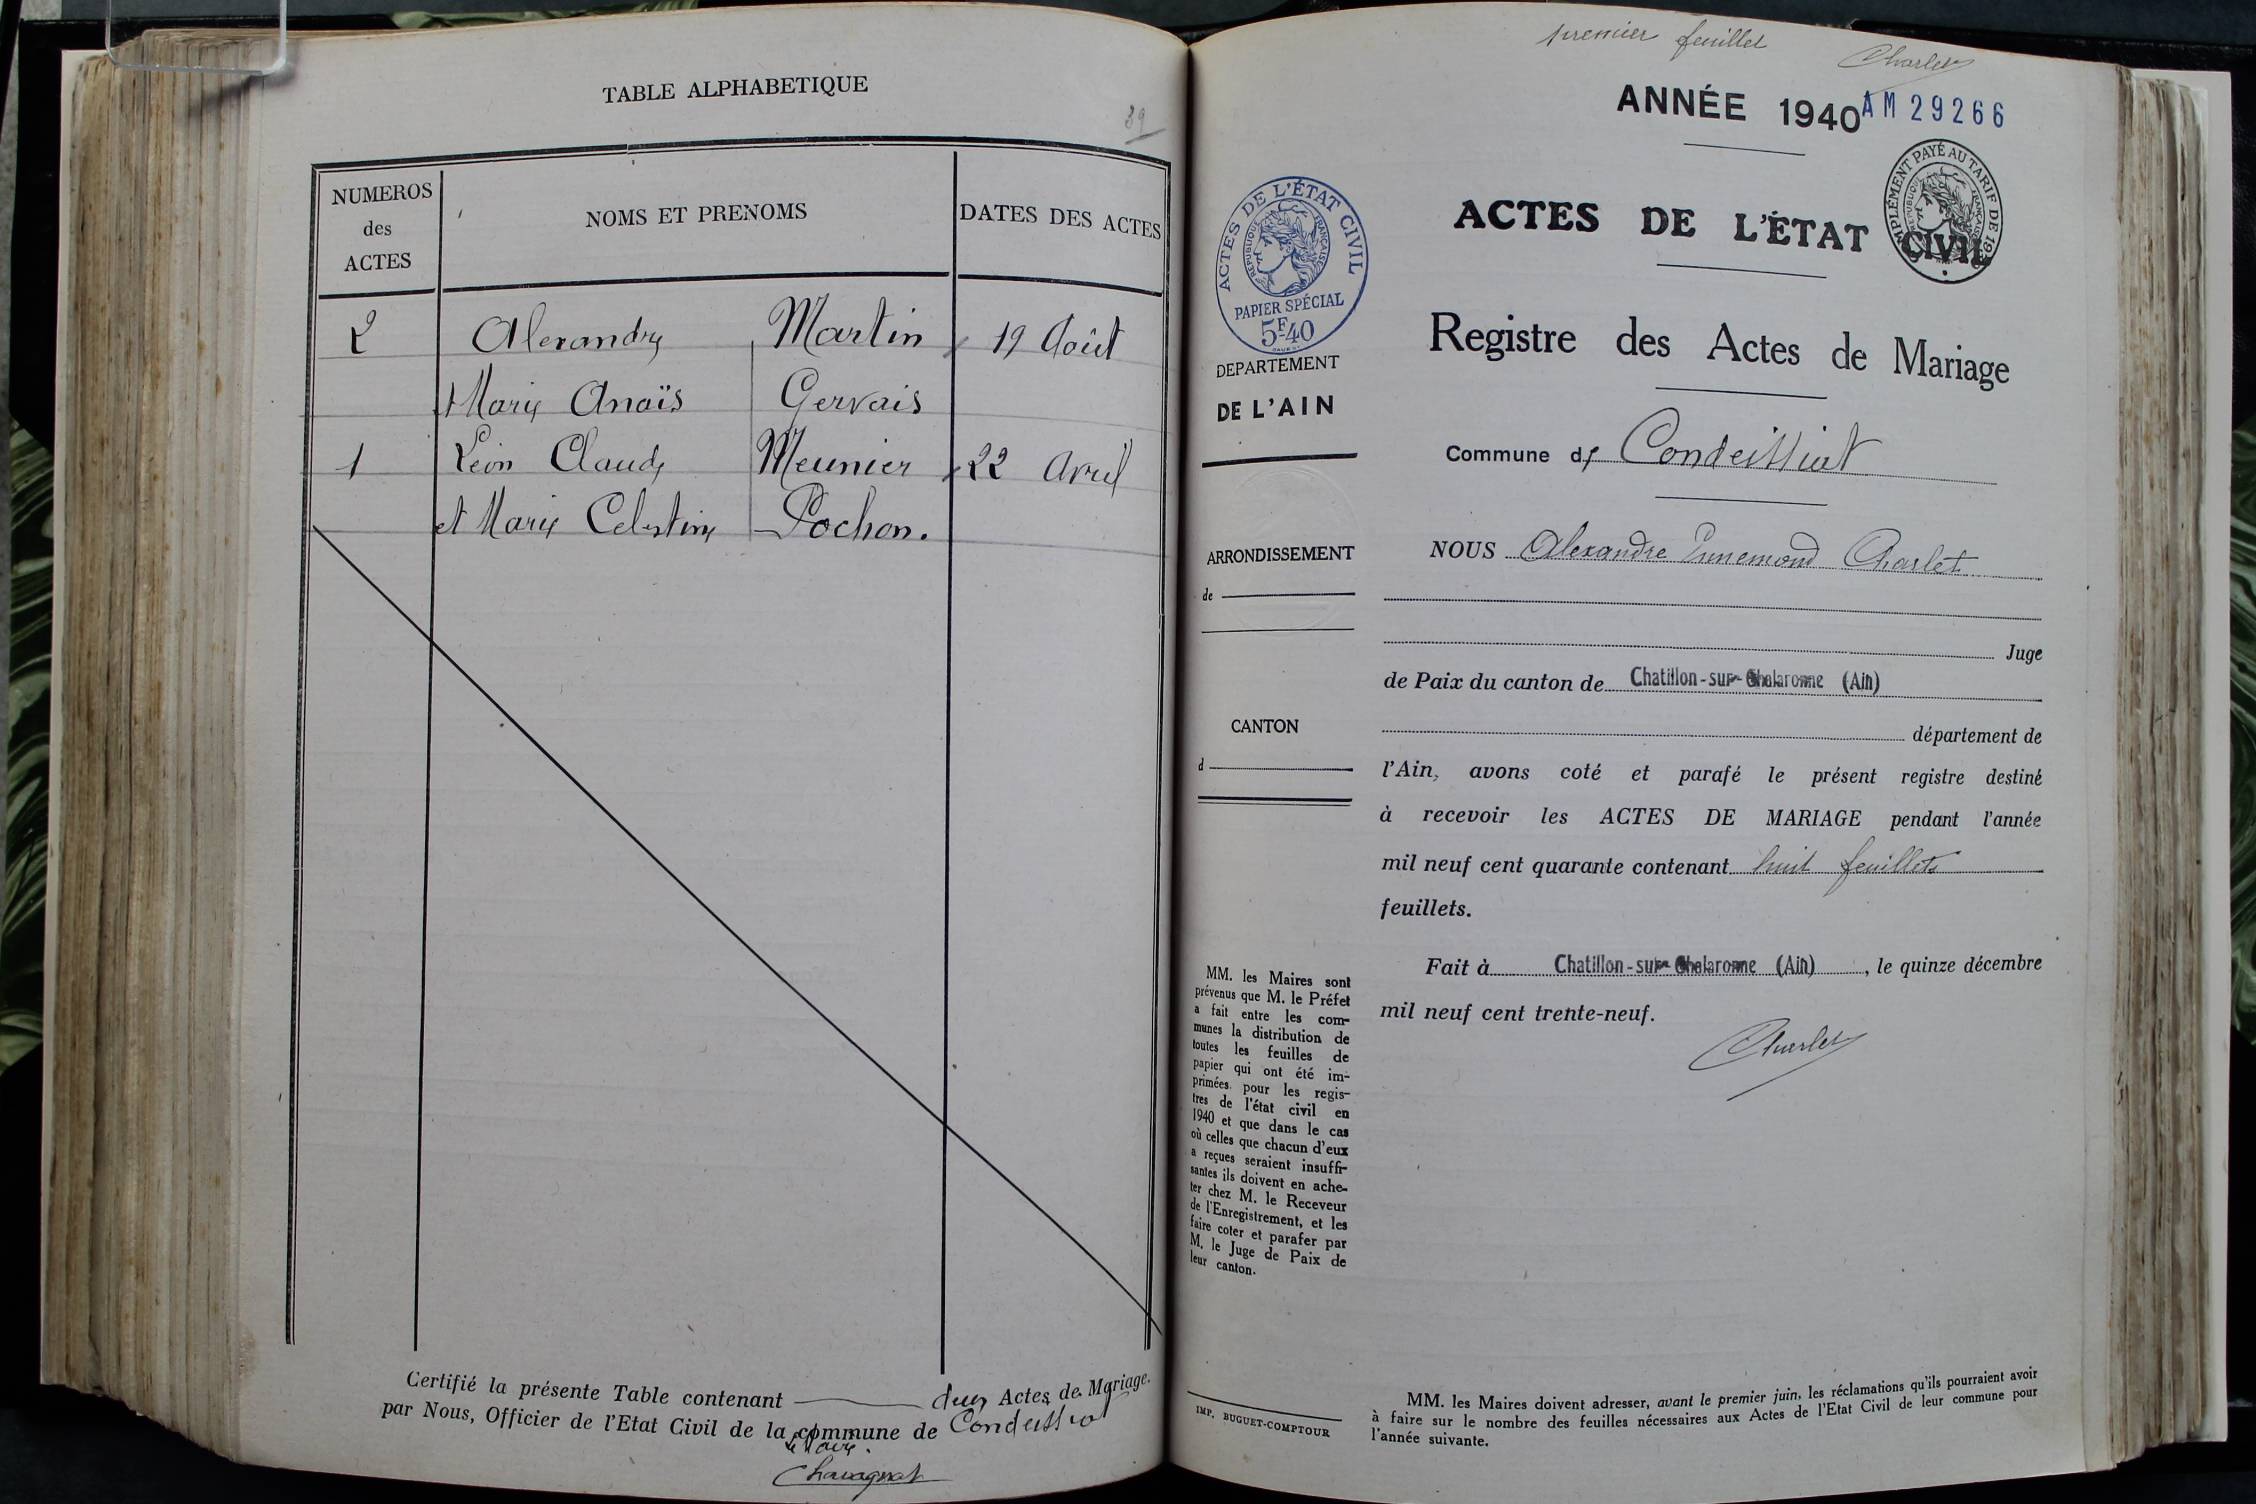 TABLE ALPHABETIQUE
39
NUMEROS des ACTES
NOMS ET PRENOMS
DATES DES ACTES
2 Alexandre Martin 19 Août
et Marie Anaïs Gervais
1 Léon Claude Meunier 22 Avril
et Marie Celestine Pochon.
Certifié la présente Table contenant deux Actes de Mariage.
par Nous, Officier de l'Etat Civil de la commune de Condeissiat
Le Maire.
Chavagnat
premier feuillet
Charlet
ANNÉE 1940
AM 29266
ACTES DE L'ÉTAT CIVIL
RÉPUBLIQUE FRANÇAISE
PAPIER SPÉCIAL
5F40
ACTES DE L'ÉTAT CIVIL
Registre des Actes de Mariage
DEPARTEMENT
DE L'AIN
Commune de Condeissiat
ARRONDISSEMENT
de
CANTON
d
NOUS Alexandre Ennemond Charlet
Juge
de Paix du canton de Chatillon-sur-Chalaronne (Ain)
département de
l'Ain, avons coté et parafé le présent registre destiné
à recevoir les ACTES DE MARIAGE pendant l'année
mil neuf cent quarante contenant huit feuillets
feuillets.
Fait à Chatillon-sur-Chalaronne (Ain), le quinze décembre
mil neuf cent trente-neuf.
Charlet
MM. les Maires sont
prévenus que M. le Préfet
a fait entre les com-
munes la distribution de
toutes les feuilles de
papier qui ont été im-
primées pour les regis-
tres de l'état civil en
1940 et que dans le cas
où celles que chacun d'eux
a reçues seraient insuffi-
santes ils doivent en ache-
ter chez M. le Receveur
de l'Enregistrement, et les
faire coter et parafer par
M. le Juge de Paix de
leur canton.
IMP. BUGUET-COMPTOUR
MM. les Maires doivent adresser, avant le premier juin, les réclamations qu'ils pourraient avoir
à faire sur le nombre des feuilles nécessaires aux Actes de l'Etat Civil de leur commune pour
l'année suivante.